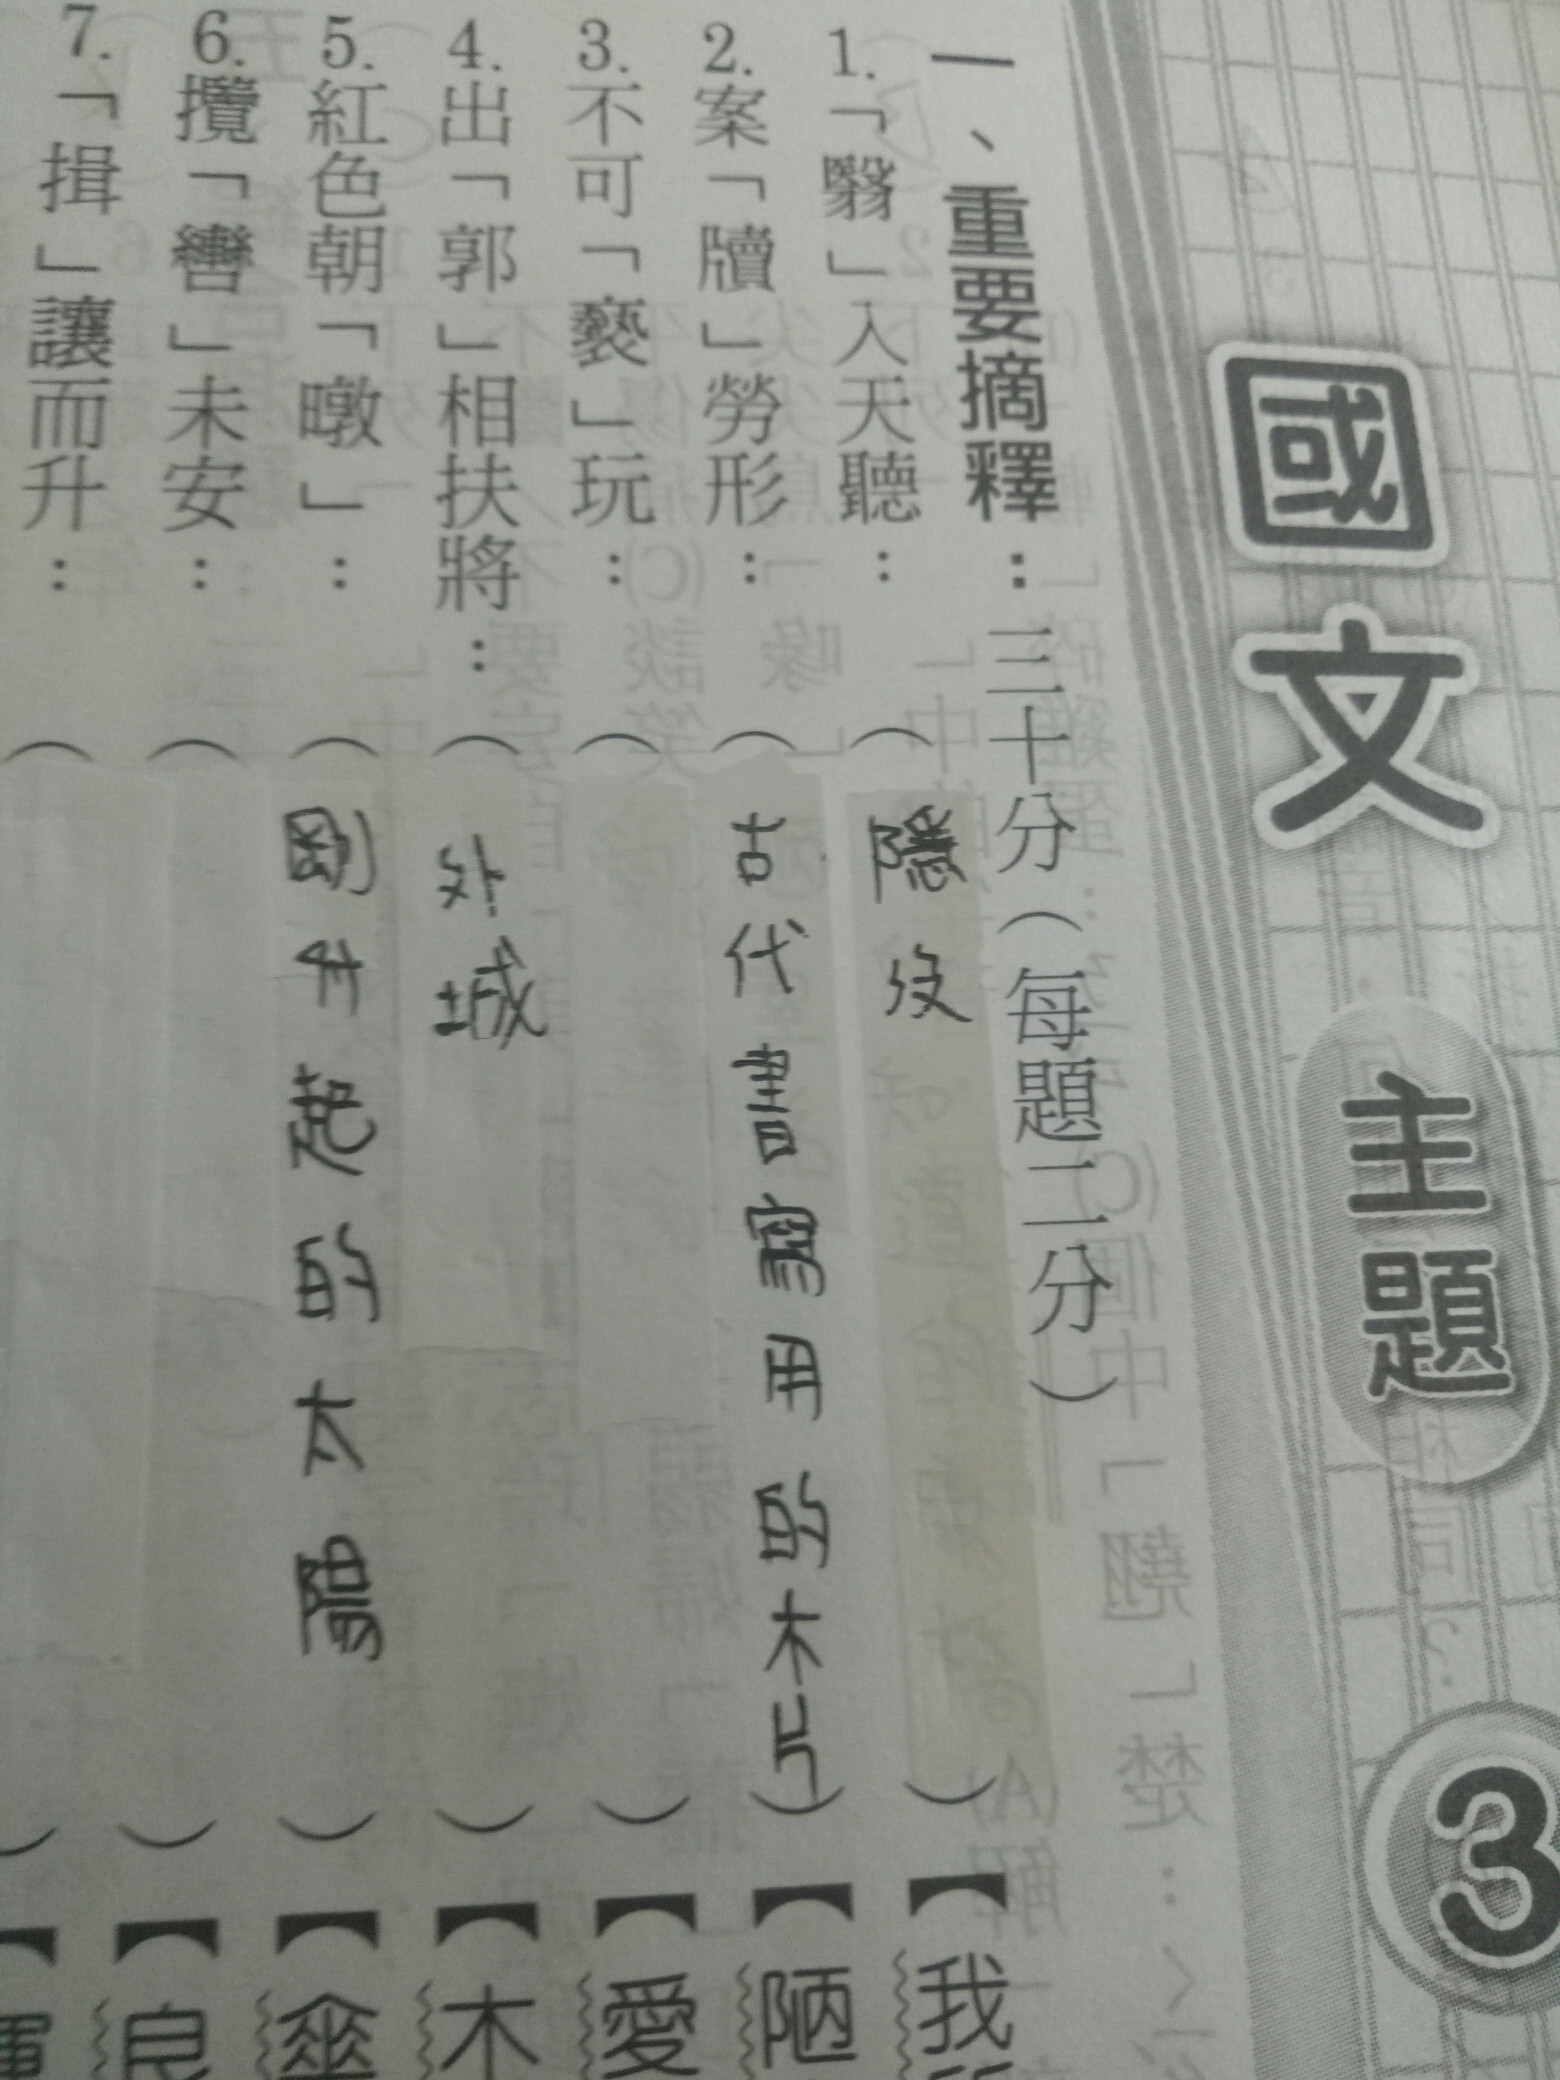 國文 主題 3
一、重要摘釋：三十分（每題二分）
1.「翳」入天聽：（隱没）【我
2.案「牘」勞形：（古代書寫用的木片）【陋
3.不可「褻」玩：（）【愛
4.出「郭」相扶將：（外城）【木
5.紅色朝「暾」：（剛升起的太陽）【傘
6.攬「轡」未安：（）【良
7.「揖」讓而升：（）【運